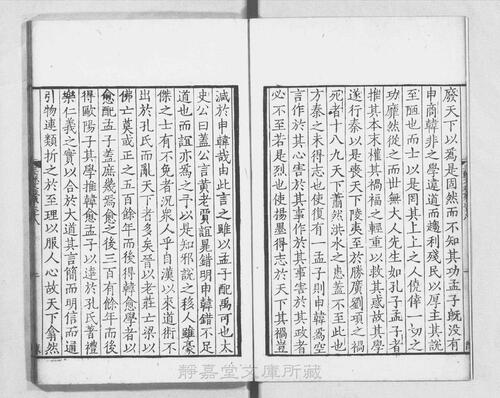 廢天下以爲是固然而不知其功孟子旣沒有
申商韓非之學違道而趨利殘民以厚主其說
至陋也而士以是罔其上上之人僥倖一切之
功靡然從之而世無大人先生如孔子孟子者
推其本末權其禍福之輕重以救其惑故其學
遂行秦以是喪天下陵夷至於勝廣劉項之禍
死者十八九天下蕭然洪水之患蓋不至此也
方秦之未得志也使復有一孟子則申韓爲空
言作於其心害於其事作於其事害於其政者
必不至若是烈也使揚墨得志於天下其禍豈
減於申韓哉由此言之雖以孟子配禹可也太
史公曰蓋公言黃老賈誼晁錯明申韓錯不足
道也而誼亦爲之予以是知邪說之移人雖豪
傑之士有不免者況衆人乎自漢以來道術不
出於孔氏而亂天下者多矣晉以老莊亡梁以
佛亡莫或正之五百餘年而後得韓愈學者以
愈配孟子蓋庶幾焉愈之後三百有餘年而後
得歐陽子其學推韓愈孟子以達於孔氏著禮
樂仁義之實以合於大道其言簡而明信而通
引物連類折之於至理以服人心故天下翕然
靜嘉堂文庫所藏